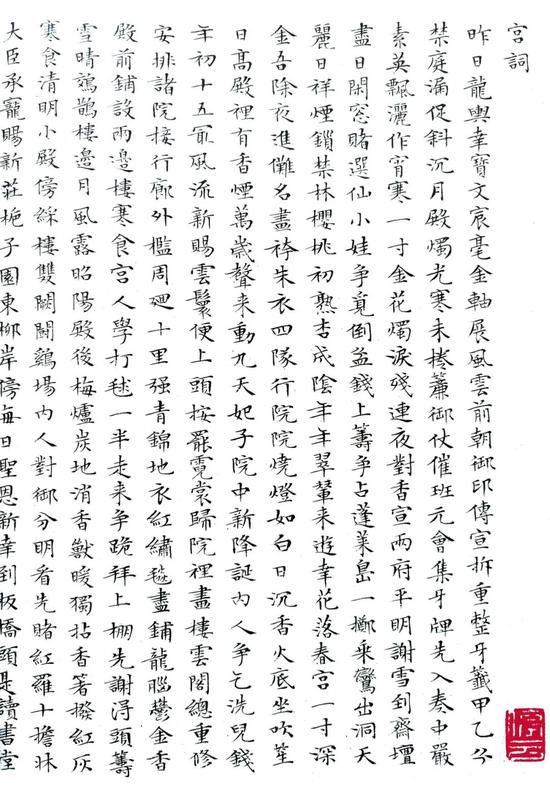 宫詞
昨日龍輿幸寶文宸毫金軸展風雲前朝御印傳宣拆重整牙籤甲乙分
禁庭漏促斜沉月殿燭光寒未捲簾御仗催班元會集牙牌先入奏中嚴
素英飄灑作宵寒一寸金花燭淚殘連夜對香宣兩府平明謝雪到齋壇
盡日閑窓賭選仙小娃争覓倒盆錢上籌争占蓬萊島一擲乘鸞出洞天
麗日祥煙鎖禁林櫻桃初熟杏成陰年年翠輦来遊幸花落春宫一寸深
金吾除夜進儺名畫袴朱衣四隊行院院燒燈如白日沉香火底坐吹笙
日髙殿裡有香煙萬歲聲来動九天妃子院中新降誕内人争乞洗兒錢
年初十五冣風流新賜雲鬟便上頭按罷霓裳歸院裡畫樓雲閣總重修
安排諸院接行廊外檻周迴十里强青錦地衣紅繡毯盡鋪龍腦鬱金香
殿前鋪設兩邊樓寒食宫人學打毬一半走来争跪拜上棚先謝得頭籌
雪晴鳷鵲樓邊月風露昭陽殿後梅爐炭地消香獸暖獨拈香箸撥紅灰
寒食清明小殿傍綵樓雙闕鬭鷄場内人對御分明看先賭紅羅十擔牀
大臣承寵賜新莊梔子園東柳岸傍每日聖恩新幸到板橋頭是讀書堂